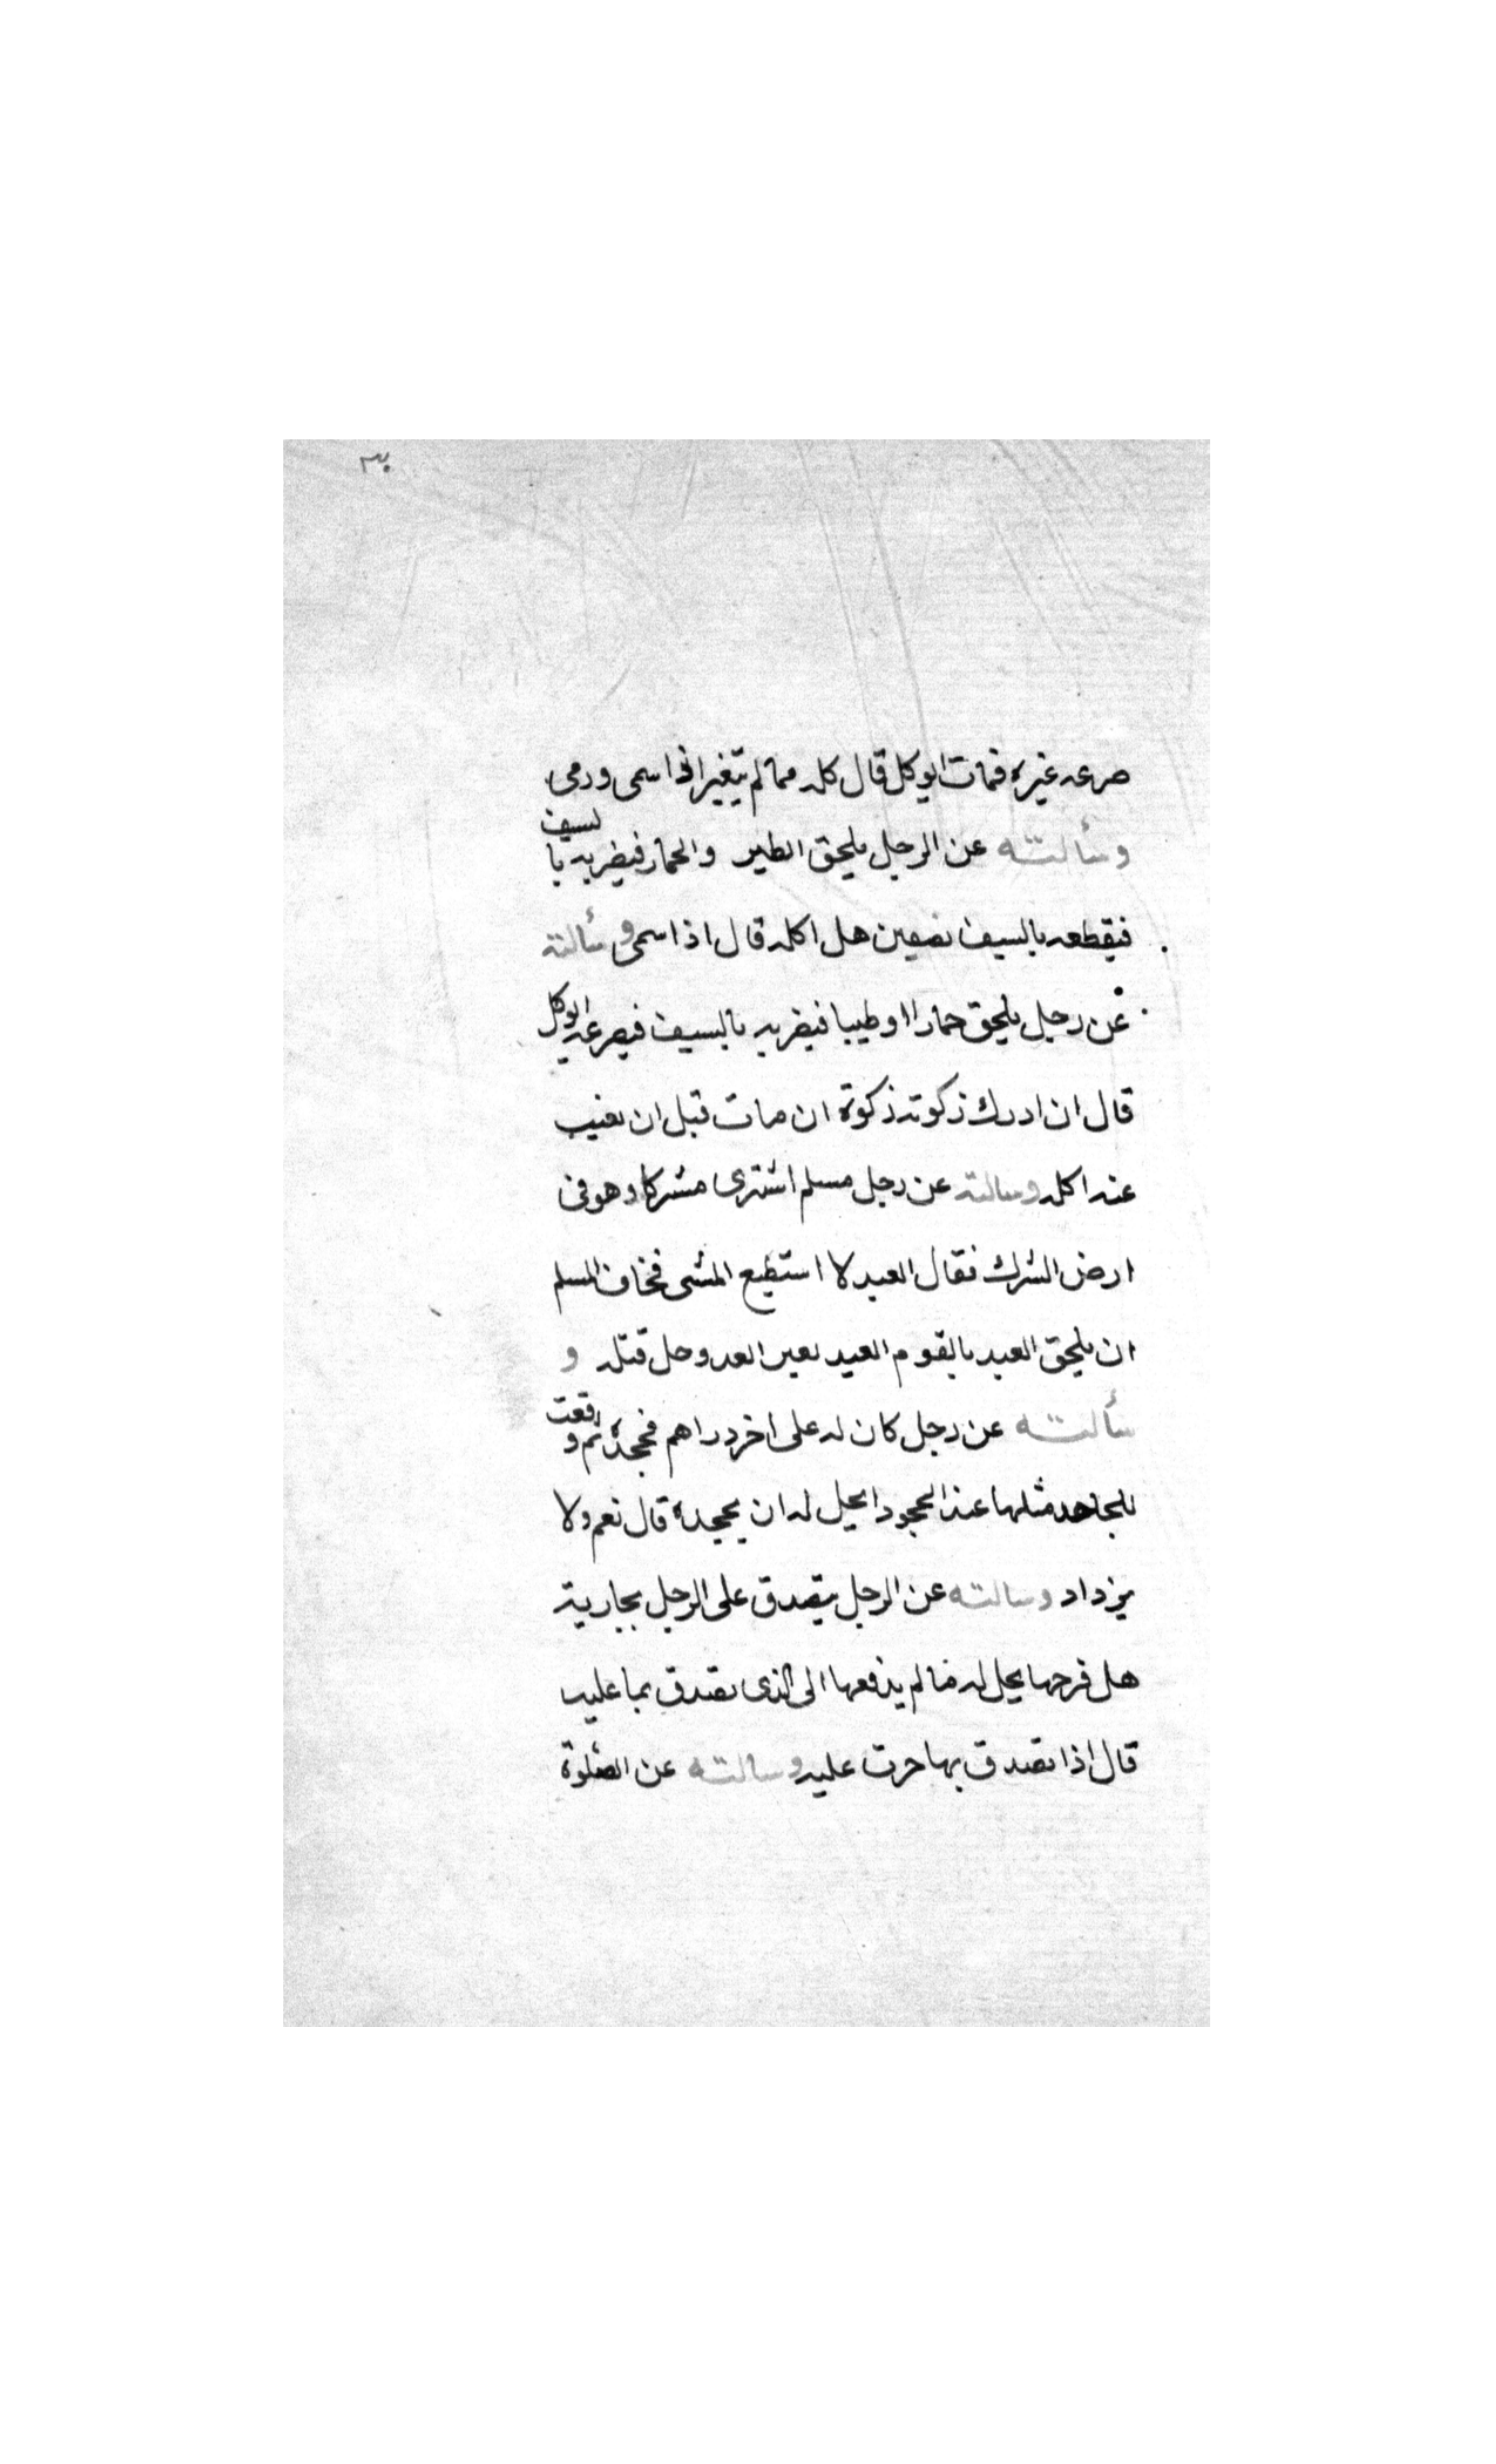 ٣٠
صرعه غيره فمات ايوكل قال كله مما لم يتغير اذا سمى ورمى
وسألته عن الرجل يلحق الطير والحمار فيضربه بالسيف
فيقطعه بالسيف نصفين هل اكله قال اذا سمى وسألته
عن رجل يلحق حمارا او ظبيا فيضربه بالسيف فيصرعه ايوكل
قال ان ادرك زكوته ذكوة ان مات قبل ان يغيب
عنه اكله وسالته عن رجل مسلم اشترى مشركا وهو فى
ارض الشرك فقال العبد لا استطيع المشى فخاف المسلم
ان يلحق العبد بالقوم العبد لعين العدو حل قتله و
سألته عن رجل كان له على اخر دراهم فجحده ثم وقعت
للجاحد مثلها عند المجحود ايحل له ان يجحده قال نعم ولا
يزداد وسالته عن الرجل يتصدق على الرجل بجارية
هل فرجها يحل له ما لم يدفعها الى الذى تصدق بها عليه
قال اذا تصدق بها حرت عليه وسالته عن الصلوة